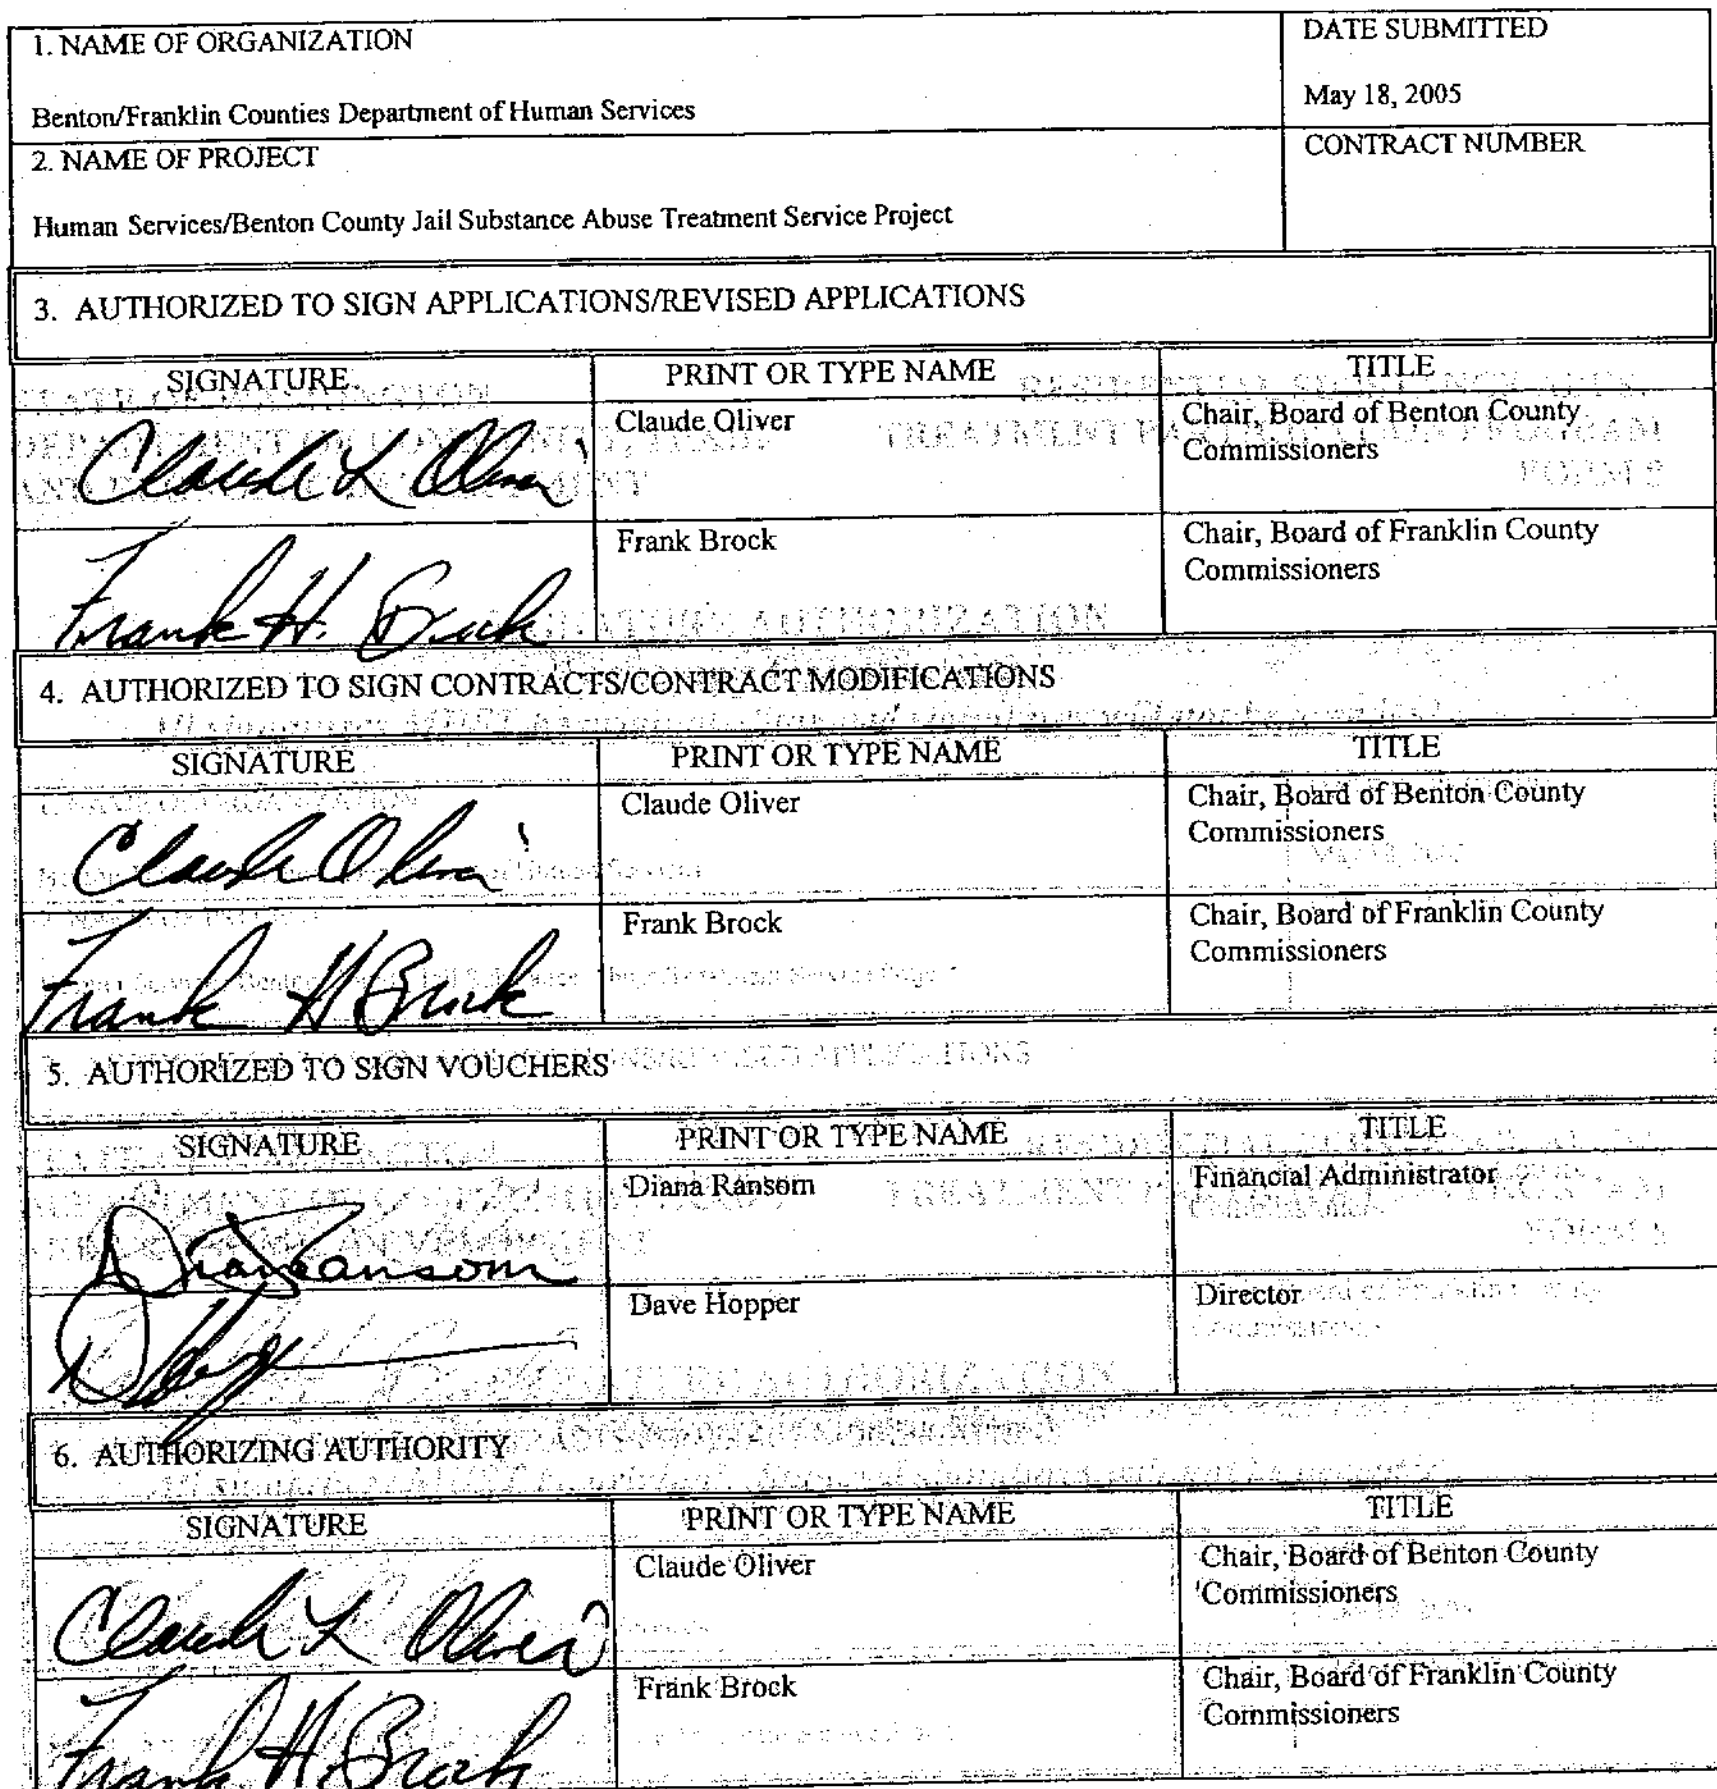 1. NAME OF ORGANIZATION
DATE SUBMITTED
Benton/Franklin Counties Department of Human Services
May 18, 2005
2. NAME OF PROJECT
CONTRACT NUMBER
Human Services/Benton County Jail Substance Abuse Treatment Service Project
3. AUTHORIZED TO SIGN APPLICATIONS/REVISED APPLICATIONS
SIGNATURE PRINT OR TYPE NAME TITLE
Claude L Oliver Claude Oliver Chair, Board of Benton County
Commissioners
Frank H. Brock Frank Brock Chair, Board of Franklin County
Commissioners
4. AUTHORIZED TO SIGN CONTRACTS/CONTRACT MODIFICATIONS
SIGNATURE PRINT OR TYPE NAME TITLE
Claude Oliver Claude Oliver Chair, Board of Benton County
Commissioners
Frank H Brock Frank Brock Chair, Board of Franklin County
Commissioners
5. AUTHORIZED TO SIGN VOUCHERS
SIGNATURE PRINT OR TYPE NAME TITLE
Diana Ransom Diana Ransom Financial Administrator
Dave Hopper Director
6. AUTHORIZING AUTHORITY
SIGNATURE PRINT OR TYPE NAME TITLE
Claude L Oliver Claude Oliver Chair, Board of Benton County
Commissioners
Frank H. Brock Frank Brock Chair, Board of Franklin County
Commissioners